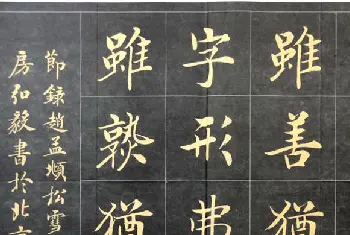 雖善
字形弗
雖孰猶
節録趙孟頫松雪
房弘毅書於北京